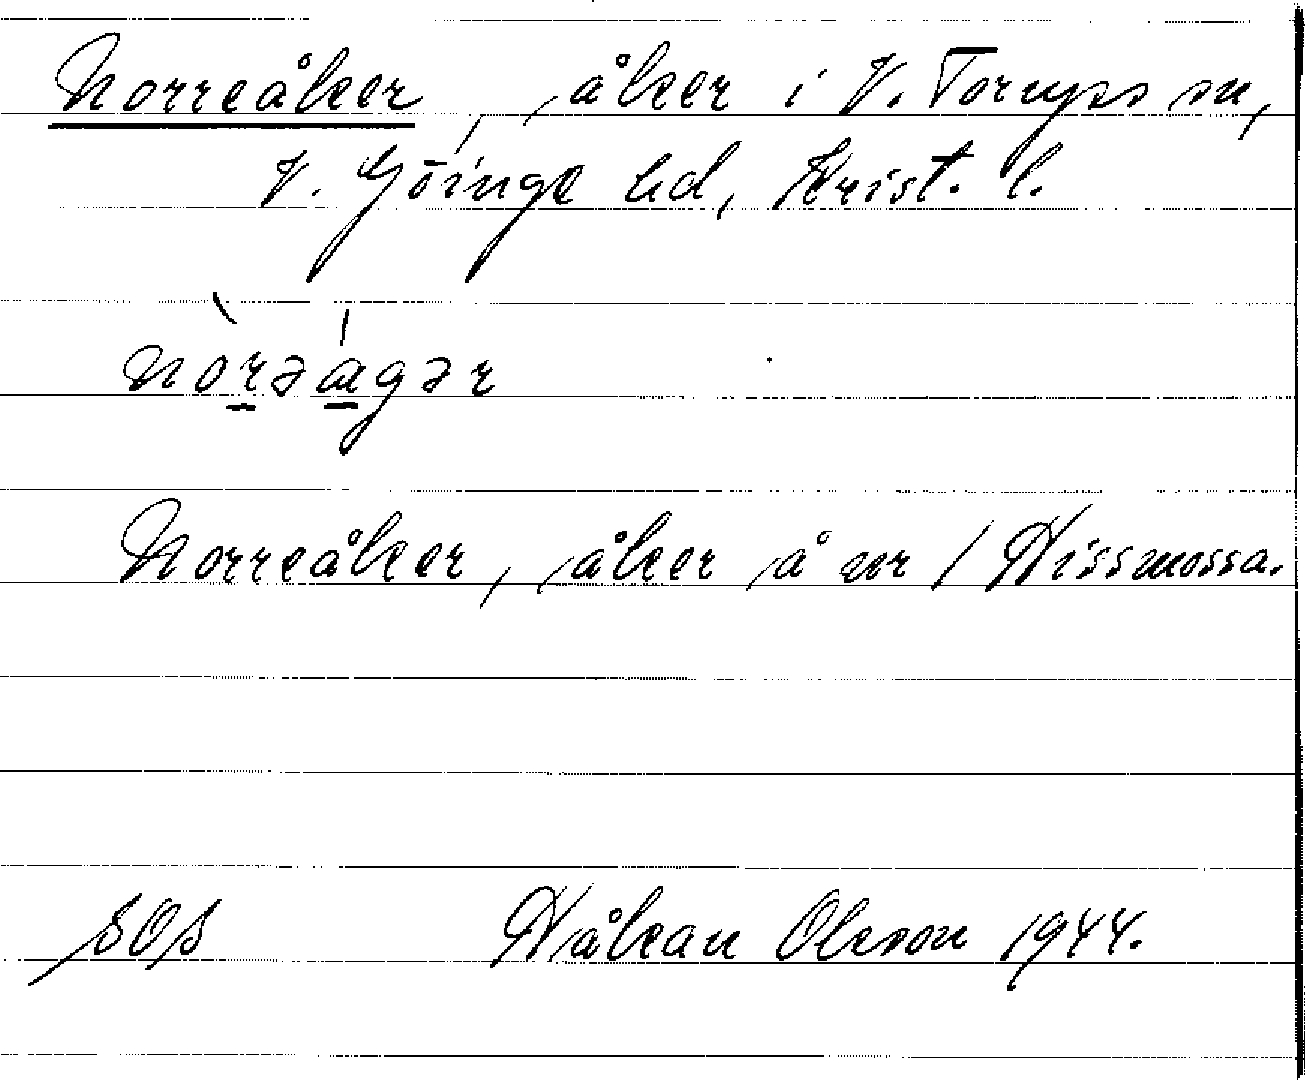 Norreåker, åker i V. Torups sn,
V. Göinge hd, Krist. l.
nòrəágər
Norreåker, åker å nr 1 Hissmossa.
SOS Håkan Olsson 1944.